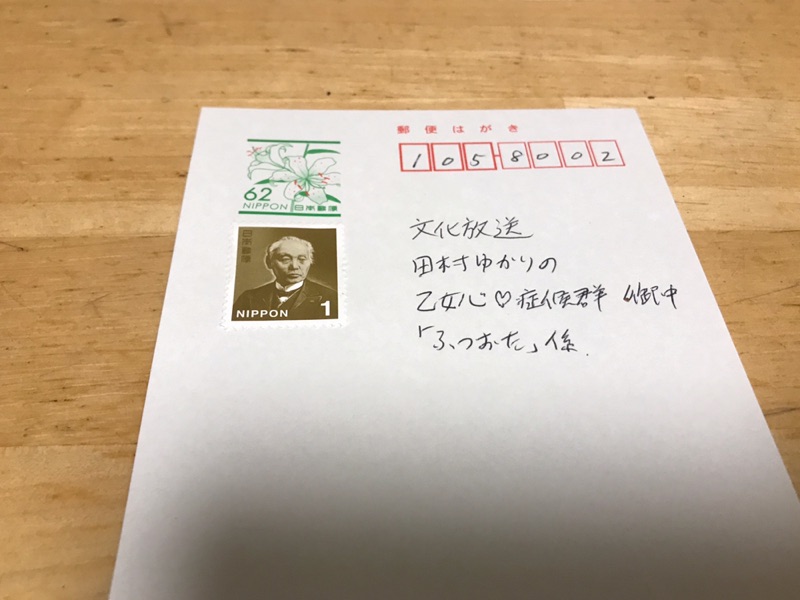 郵便はがき
105-8002
62
NIPPON 日本郵便
日本郵便
NIPPON 1
文化放送
田村ゆかりの
乙女心♡症候群 御中
「ふつおた」係